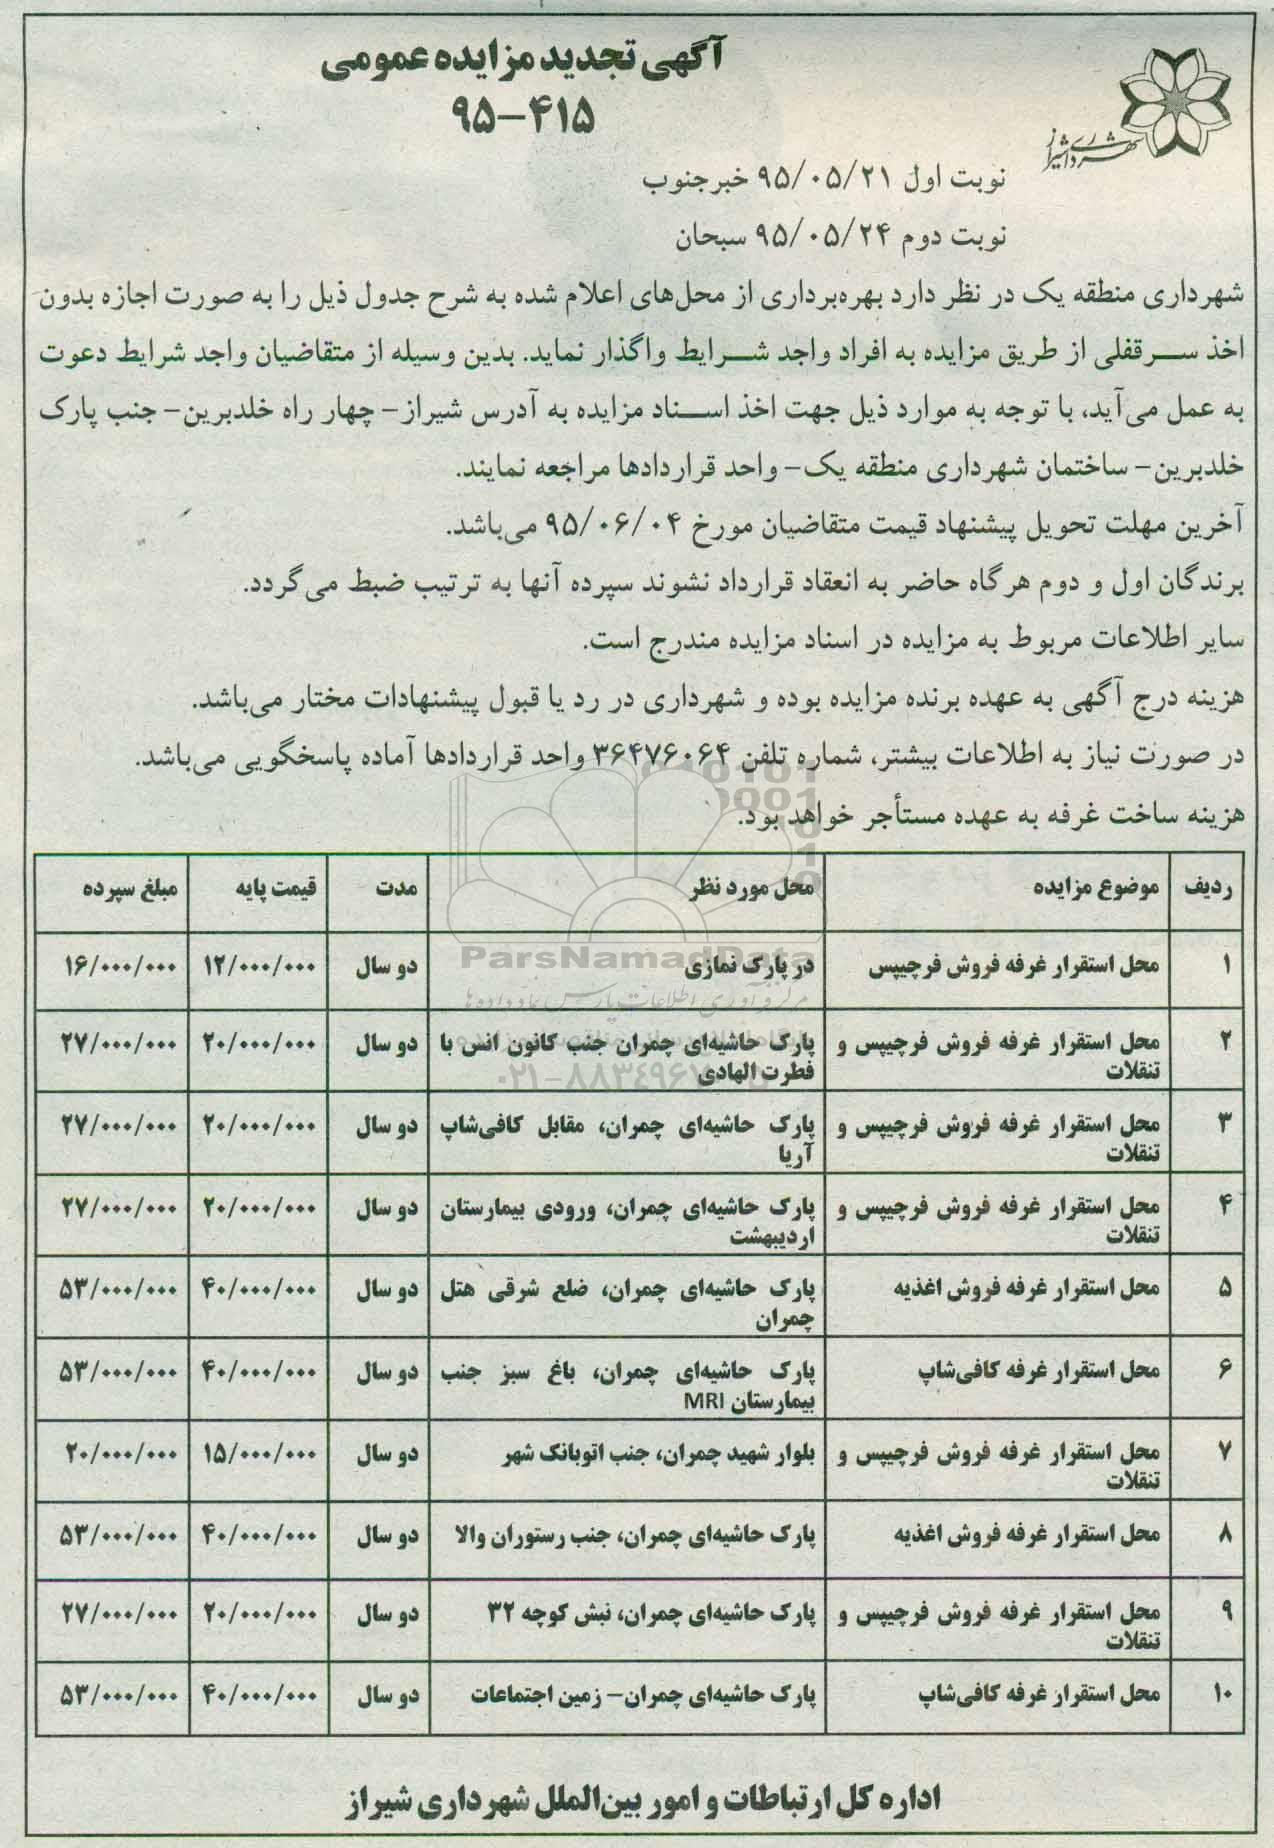 آگهی تجدید مزایده عمومی
۹۵-۴۱۵
شهرداری شیراز
نوبت اول ۹۵/۰۵/۲۱ خبرجنوب
نوبت دوم ۹۵/۰۵/۲۴ سبحان
شهرداری منطقه یک در نظر دارد بهره‌برداری از محل‌های اعلام شده به شرح جدول ذیل را به صورت اجازه بدون
اخذ سرقفلی از طریق مزایده به افراد واجد شرایط واگذار نماید. بدین وسیله از متقاضیان واجد شرایط دعوت
به عمل می‌آید، با توجه به موارد ذیل جهت اخذ اسناد مزایده به آدرس شیراز- چهار راه خلدبرین- جنب پارک
خلدبرین- ساختمان شهرداری منطقه یک- واحد قراردادها مراجعه نمایند.
آخرین مهلت تحویل پیشنهاد قیمت متقاضیان مورخ ۹۵/۰۶/۰۴ می‌باشد.
برندگان اول و دوم هرگاه حاضر به انعقاد قرارداد نشوند سپرده آنها به ترتیب ضبط می‌گردد.
سایر اطلاعات مربوط به مزایده در اسناد مزایده مندرج است.
هزینه درج آگهی به عهده برنده مزایده بوده و شهرداری در رد یا قبول پیشنهادات مختار می‌باشد.
در صورت نیاز به اطلاعات بیشتر، شماره تلفن ۳۶۴۷۶۰۶۴ واحد قراردادها آماده پاسخگویی می‌باشد.
هزینه ساخت غرفه به عهده مستأجر خواهد بود.
ردیف موضوع مزایده محل مورد نظر مدت قیمت پایه مبلغ سپرده
۱ محل استقرار غرفه فروش فرچیپس در پارک نمازی دو سال ۱۲/۰۰۰/۰۰۰ ۱۶/۰۰۰/۰۰۰
ParsNamadData
مرکز فرآوری اطلاعات پارس نماد داده‌ها
۲ محل استقرار غرفه فروش فرچیپس و پارک حاشیه‌ای چمران جنب کانون انس با دو سال ۲۰/۰۰۰/۰۰۰ ۲۷/۰۰۰/۰۰۰
تنقلات فطرت الهادی
۳ محل استقرار غرفه فروش فرچیپس و پارک حاشیه‌ای چمران، مقابل کافی‌شاپ دو سال ۲۰/۰۰۰/۰۰۰ ۲۷/۰۰۰/۰۰۰
تنقلات آریا
۴ محل استقرار غرفه فروش فرچیپس و پارک حاشیه‌ای چمران، ورودی بیمارستان دو سال ۲۰/۰۰۰/۰۰۰ ۲۷/۰۰۰/۰۰۰
تنقلات اردیبهشت
۵ محل استقرار غرفه فروش اغذیه پارک حاشیه‌ای چمران، ضلع شرقی هتل دو سال ۴۰/۰۰۰/۰۰۰ ۵۳/۰۰۰/۰۰۰
چمران
۶ محل استقرار غرفه کافی‌شاپ پارک حاشیه‌ای چمران، باغ سبز جنب دو سال ۴۰/۰۰۰/۰۰۰ ۵۳/۰۰۰/۰۰۰
بیمارستان MRI
۷ محل استقرار غرفه فروش فرچیپس و بلوار شهید چمران، جنب اتوبانک شهر دو سال ۱۵/۰۰۰/۰۰۰ ۲۰/۰۰۰/۰۰۰
تنقلات
۸ محل استقرار غرفه فروش اغذیه پارک حاشیه‌ای چمران، جنب رستوران والا دو سال ۴۰/۰۰۰/۰۰۰ ۵۳/۰۰۰/۰۰۰
۹ محل استقرار غرفه فروش فرچیپس و پارک حاشیه‌ای چمران، نبش کوچه ۳۲ دو سال ۲۰/۰۰۰/۰۰۰ ۲۷/۰۰۰/۰۰۰
تنقلات
۱۰ محل استقرار غرفه کافی‌شاپ پارک حاشیه‌ای چمران- زمین اجتماعات دو سال ۴۰/۰۰۰/۰۰۰ ۵۳/۰۰۰/۰۰۰
اداره کل ارتباطات و امور بین‌الملل شهرداری شیراز